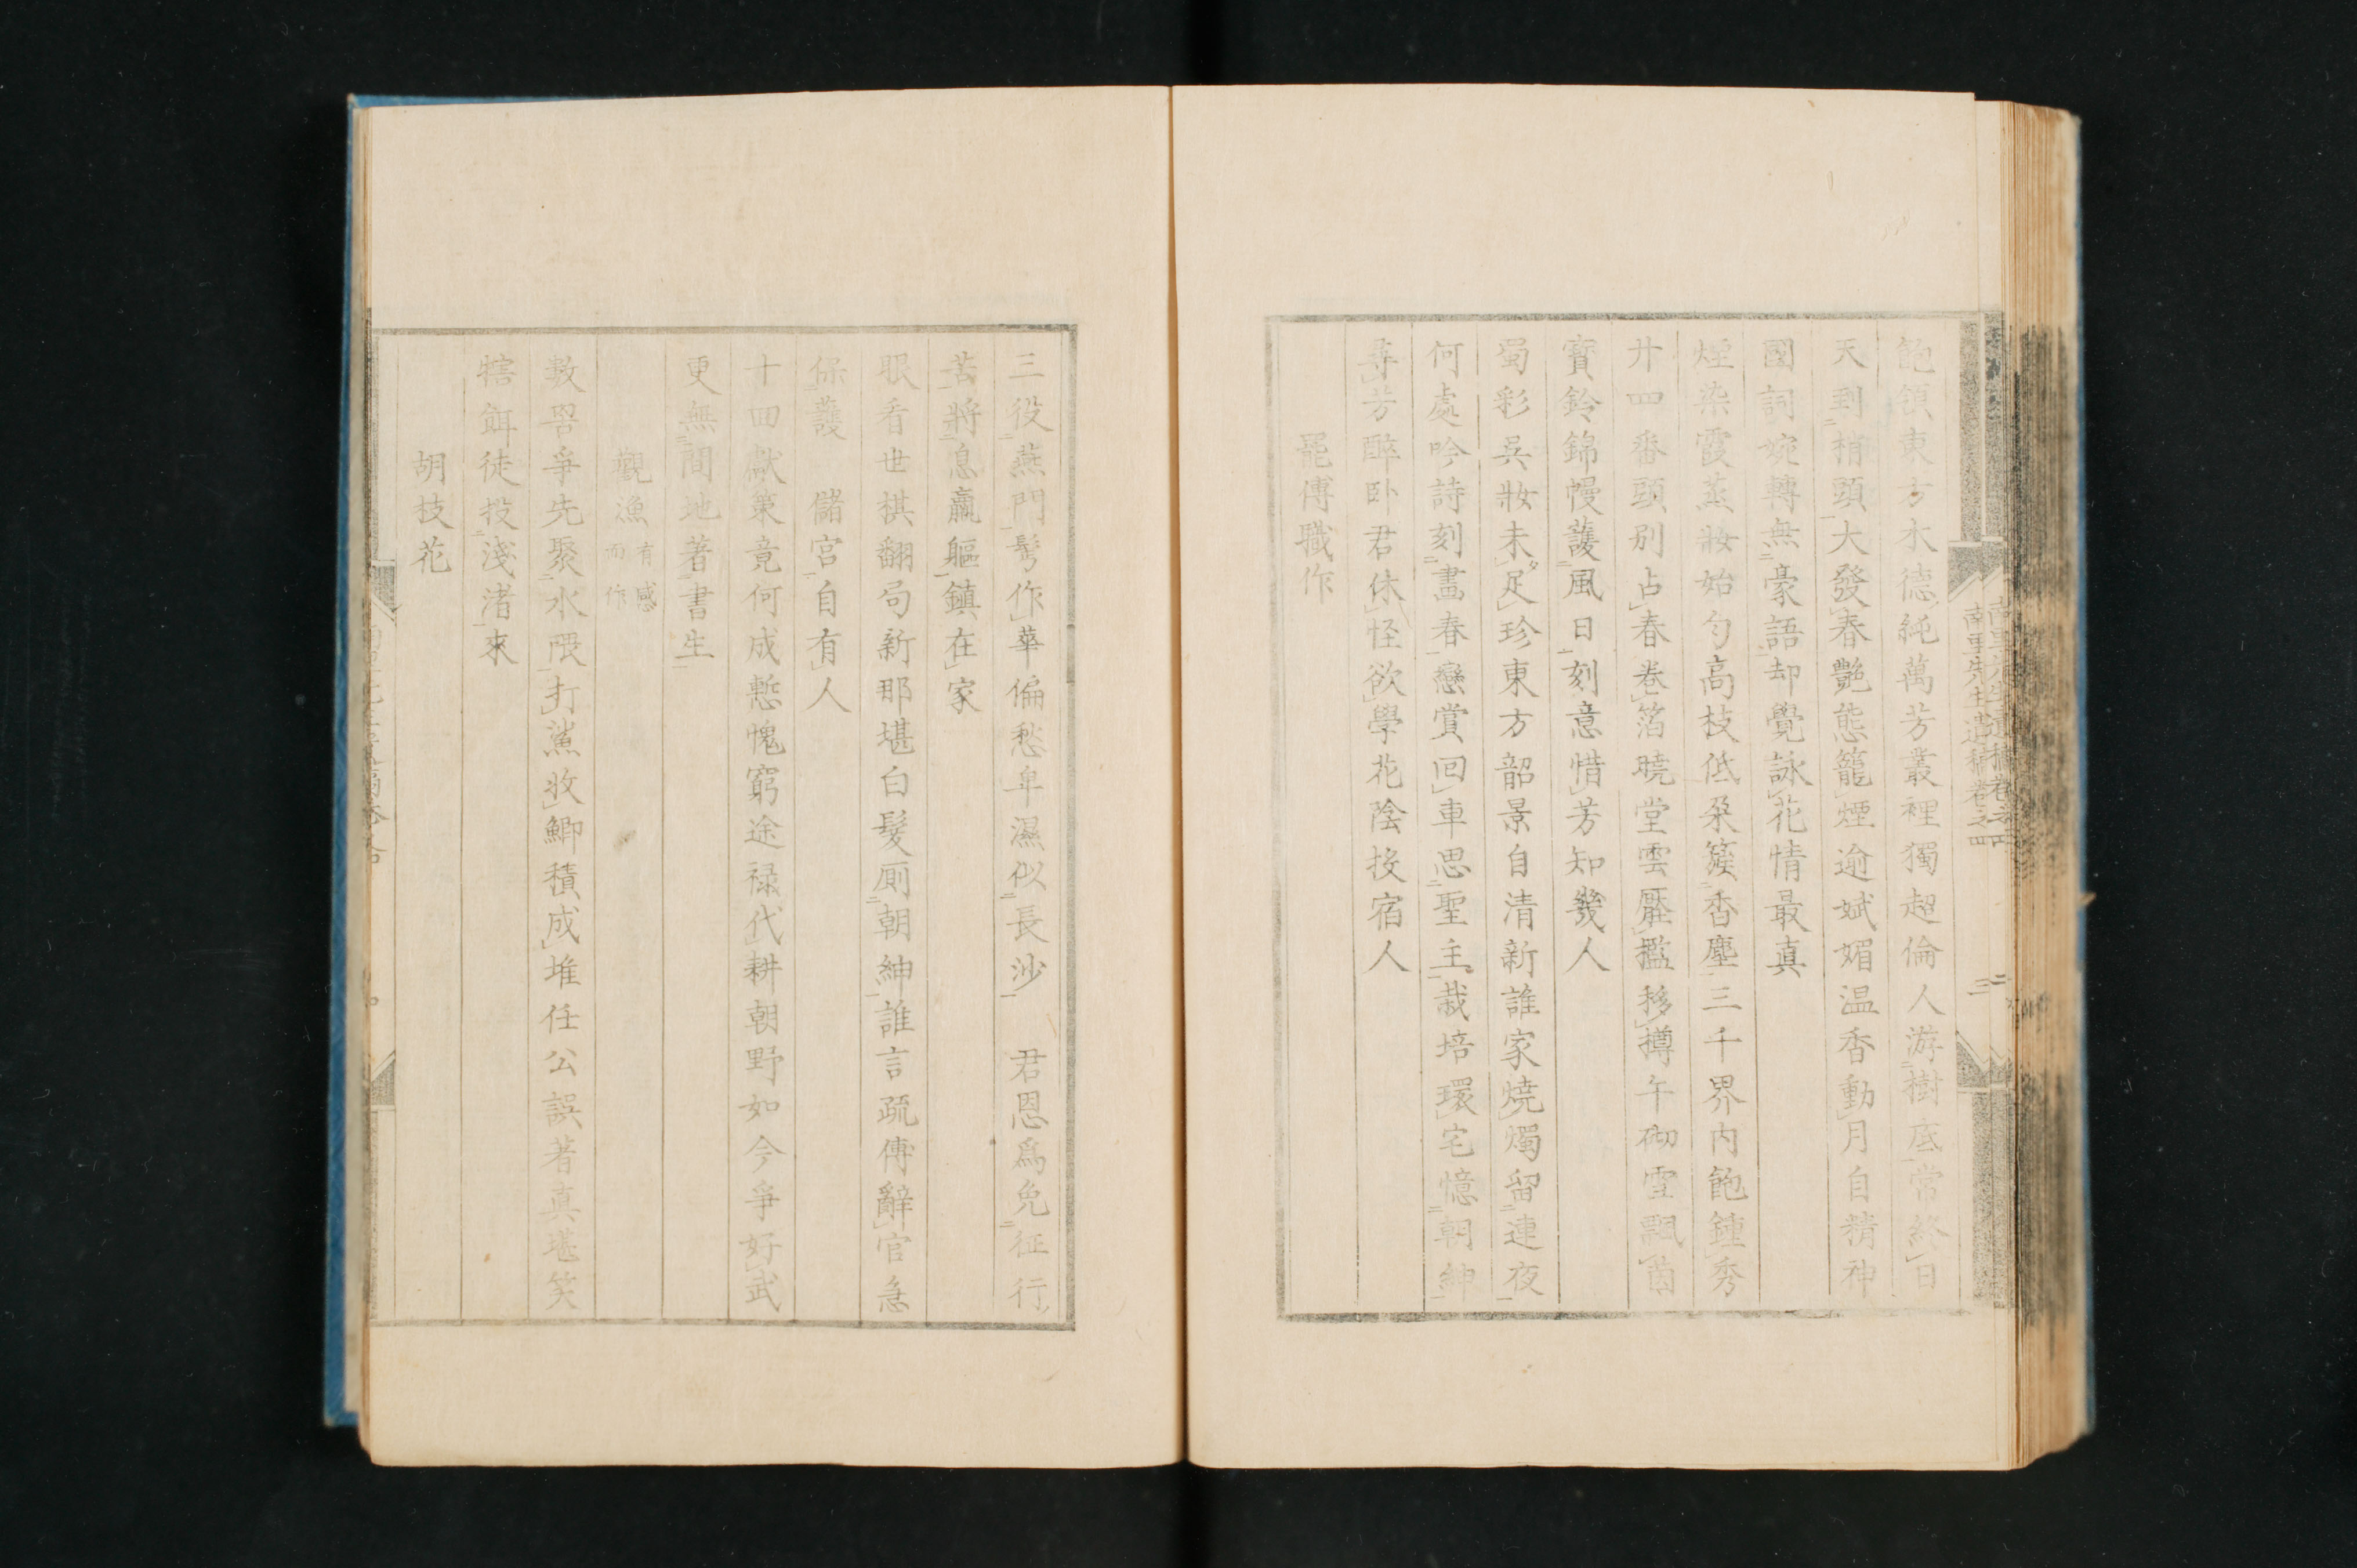 飽領東方木德純萬芳叢裡獨超倫人游樹底常終日
天到梢頭大發春艶態籠煙逾斌媚温香動月自精神
國詞婉轉無豪語却覺詠花情最真
煙染霞蒸妝始勻高枝低朶簇香塵三千界内飽鍾秀
廾四番頭別占春卷箔曉堂雲壓檻移樽午砌雪飄茵
寶鈴錦幔護風日刻意惜芳知幾人
蜀彩呉妝未足珍東方韶景自清新誰家燒燭留連夜
何處吟詩刻畫春戀賞回車思聖主栽培環宅憶朝紳
尋芳醉卧君休怪欲學花陰投宿人
罷傅職作
南里先生遺稿卷之四
三
三役燕門髩作華偏愁卑濕似長沙 君恩爲免征行
苦將息羸軀鎮在家
眼看世棋翻局新那堪白髮厠朝紳誰言疏傅辭官急
保護 儲宮自有人
十回獻策竟何成慙愧窮途禄代耕朝野如今爭好武
更無間地著書生
觀漁有感而作
數罟爭先聚水隈打鯊收鯽積成堆任公誤著真堪笑
犗餌徒投淺渚來
胡枝花